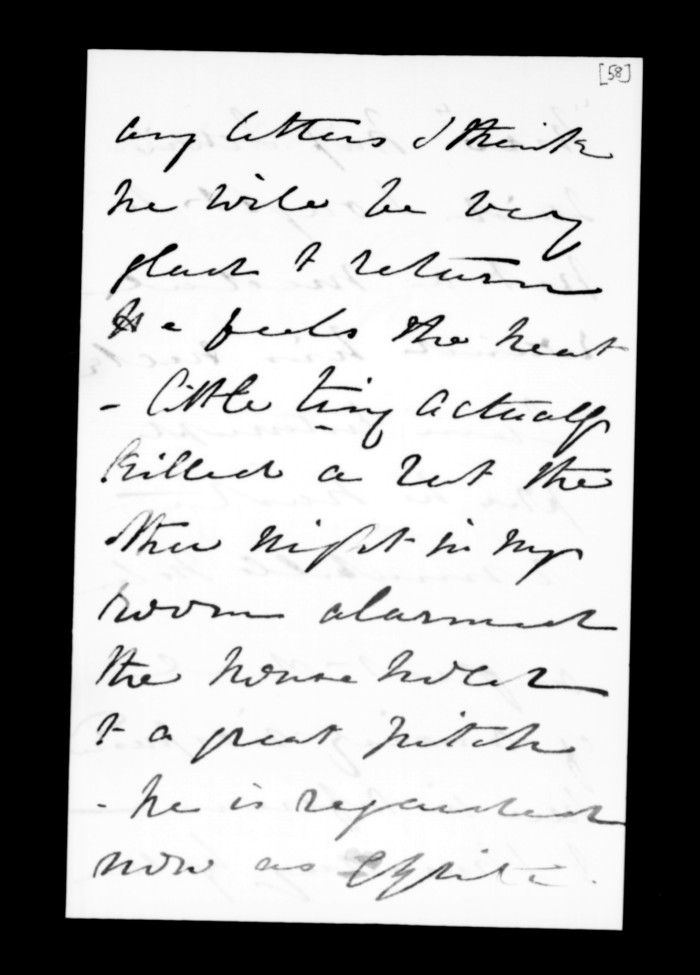 [58]
any letters I think
he will be very
glad to return
He feels the heat
- little tiny actually
killed a rat the
other night in my
room alarmed
the household
to a great pitch
- he is regarded
now as